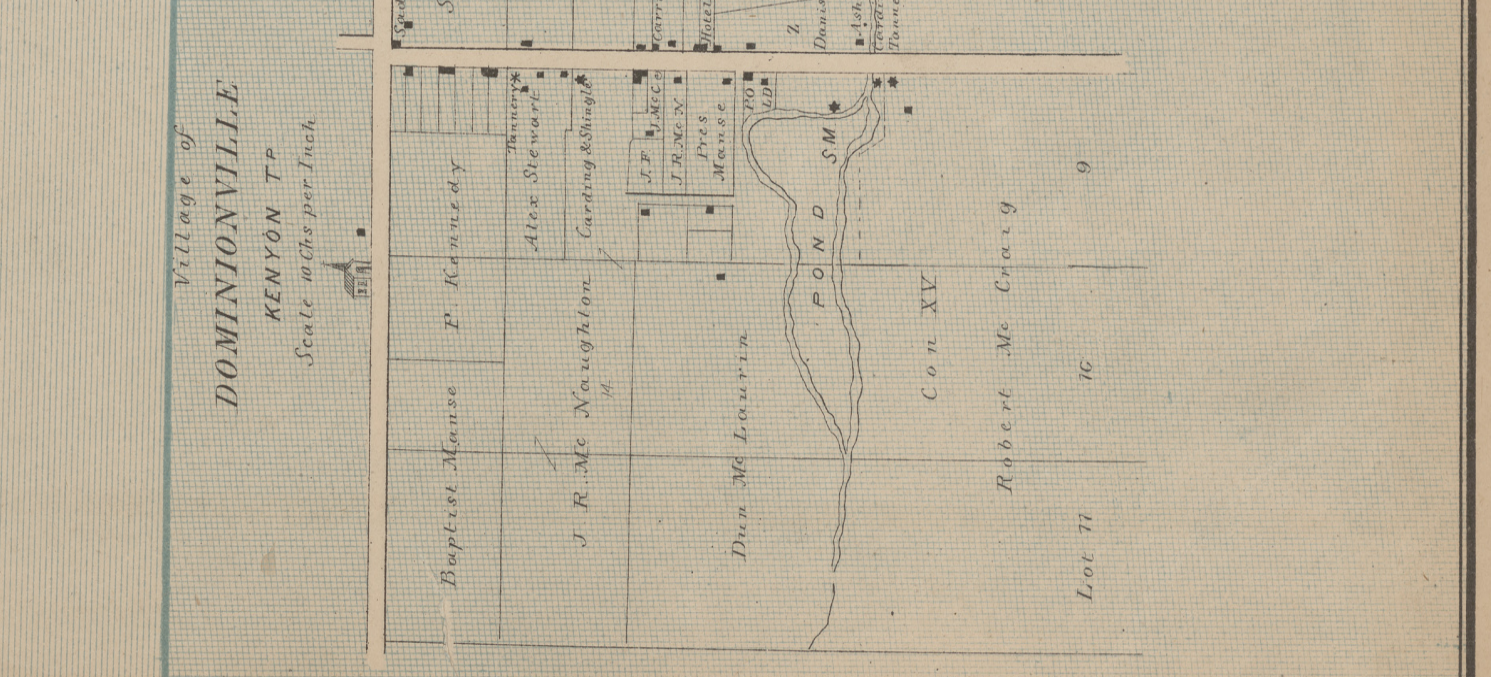 Village of
DOMINIONVILLE
KENYON TP
Scale 10 Chs per Inch
Baptist Manse
P. Kennedy
Tannery
Alex Stewart
Carding & Shingle
J R. Mc Naughton
14
J. F.
J. McC
J. R. Mc N
Pres
Manse
Hotel
PO
LD
Dun Mc Laurin
Z
Danis
Ash
Cardi
Tanne
SM
POND
Con XV
Robert Mc Craig
Lot 11
10
9